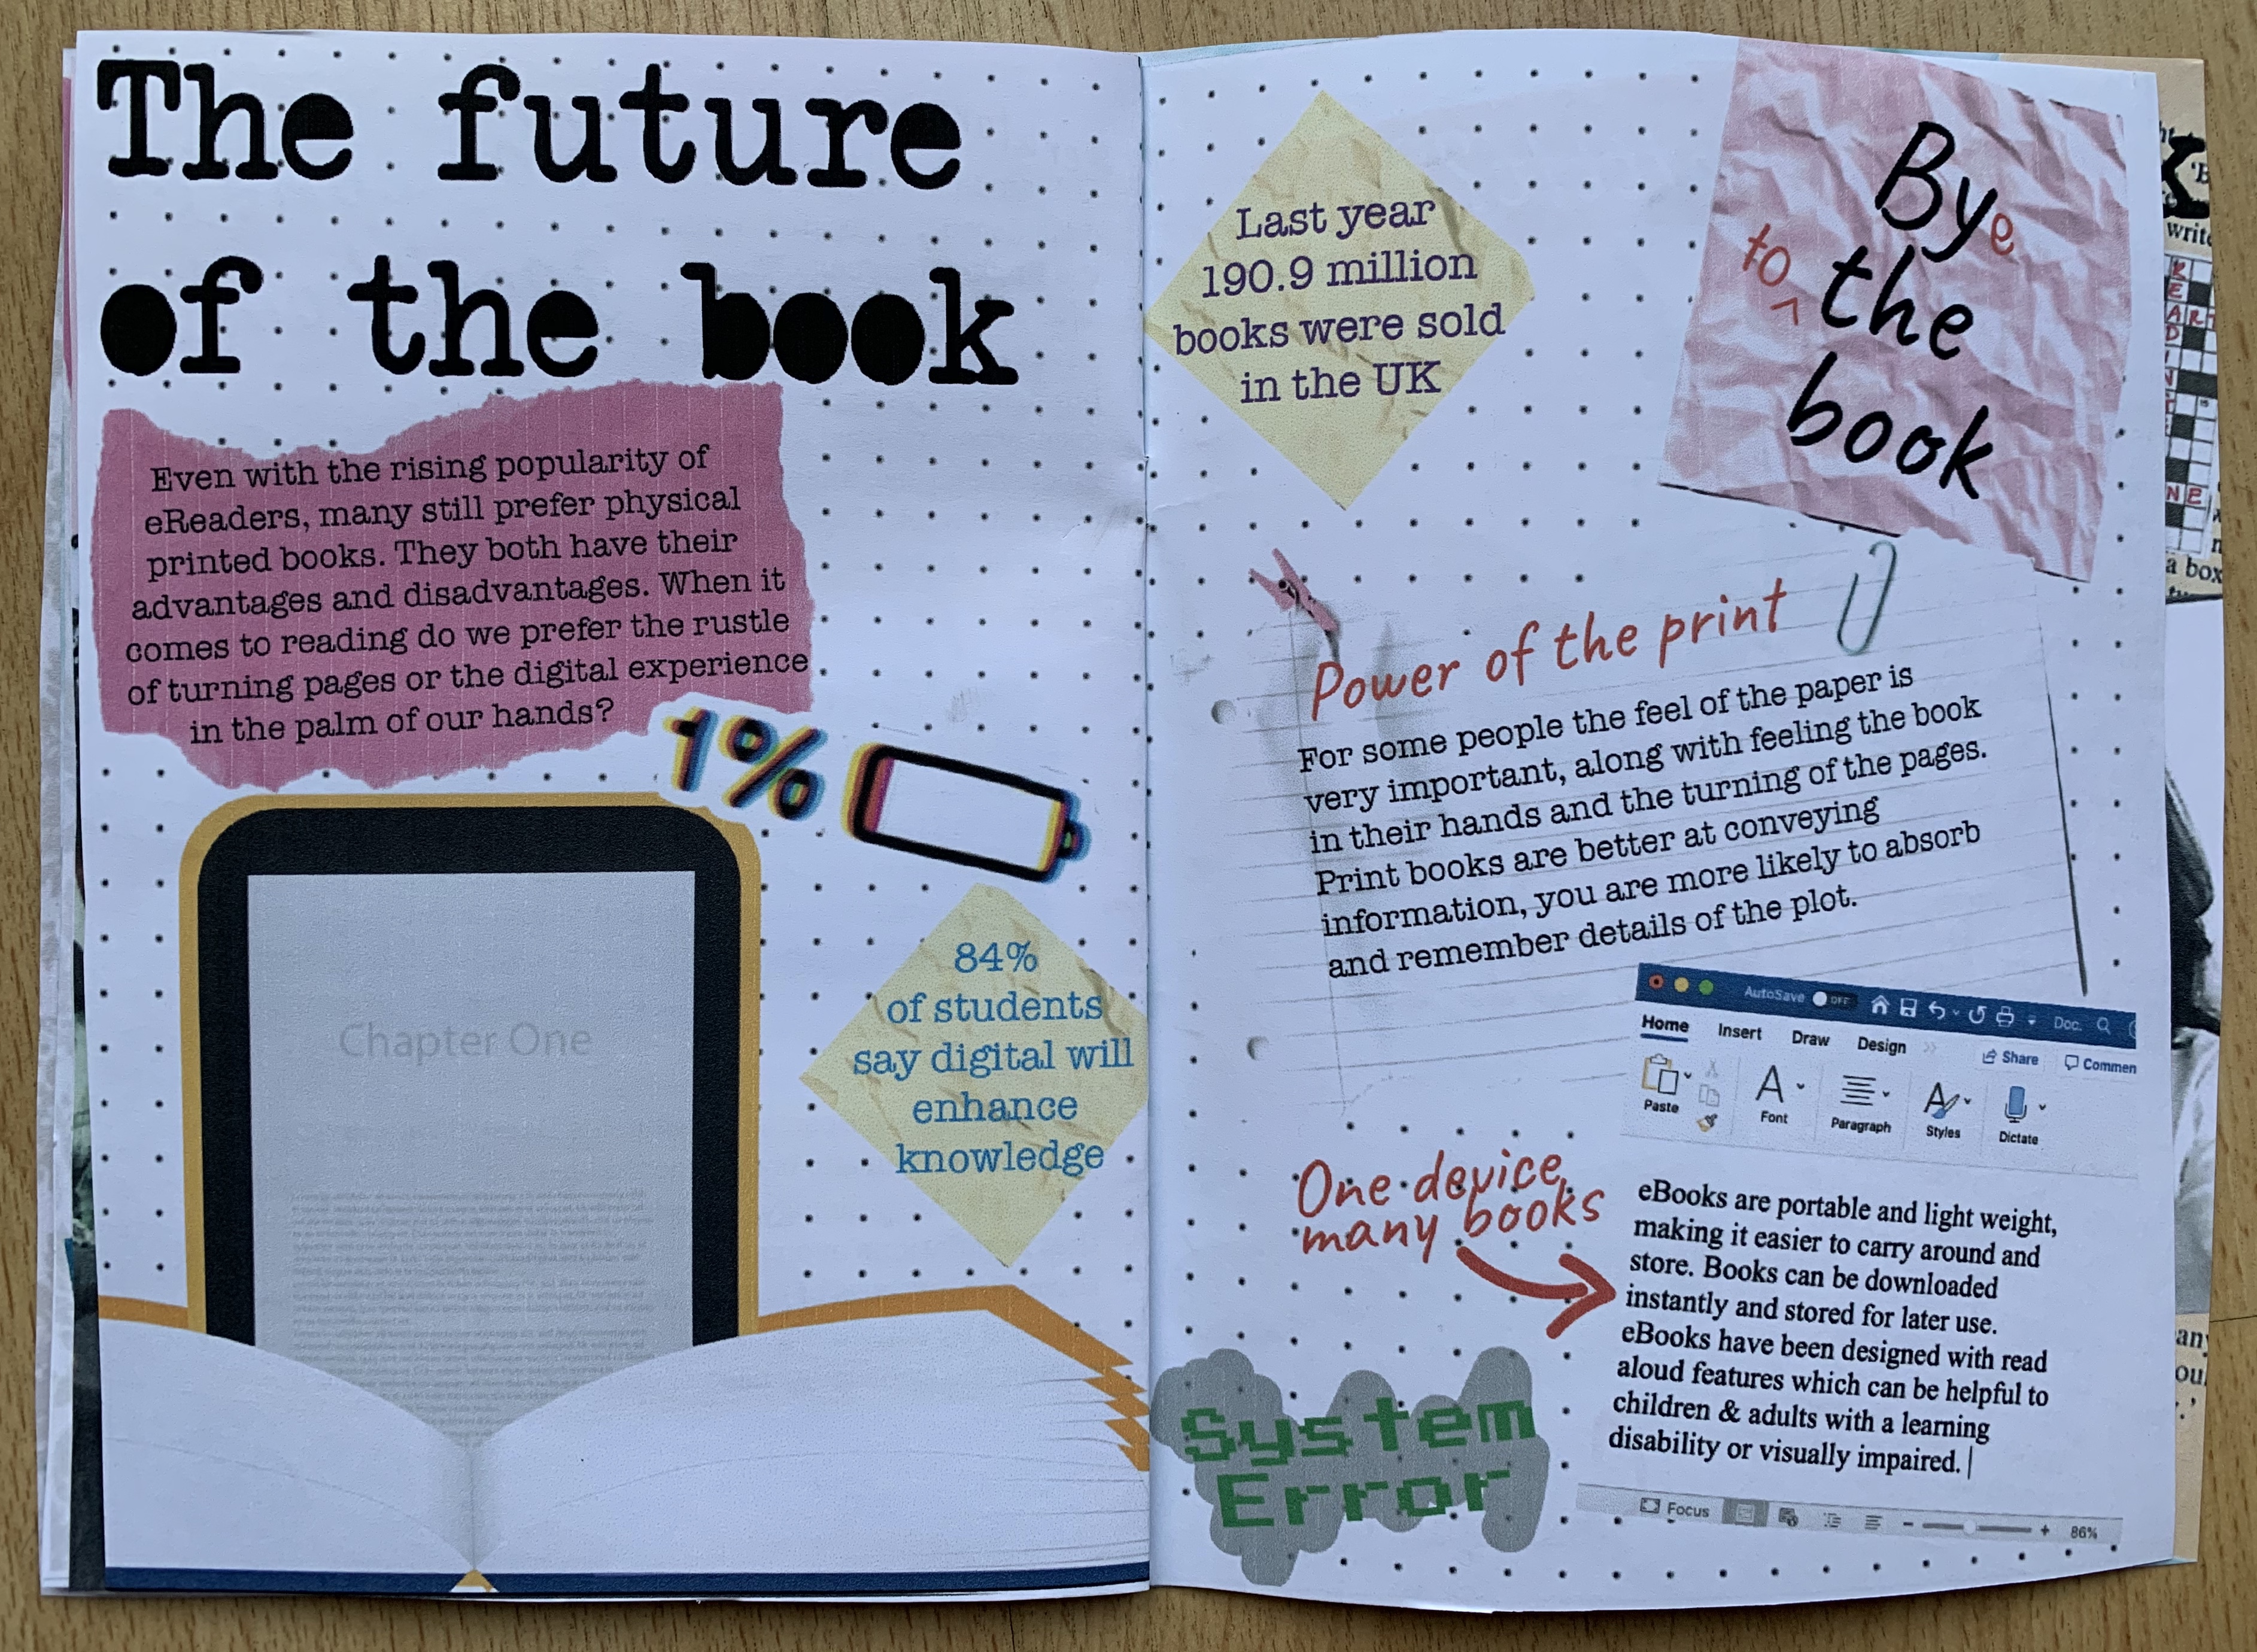 The future
of the book
Even with the rising popularity of
eReaders, many still prefer physical
printed books. They both have their
advantages and disadvantages. When it
comes to reading do we prefer the rustle
of turning pages or the digital experience
in the palm of our hands?
1%
Chapter One
84%
of students
say digital will
enhance
knowledge
Last year
190.9 million
books were sold
in the UK
Bye
to the
book
Power of the print
For some people the feel of the paper is
very important, along with feeling the book
in their hands and the turning of the pages.
Print books are better at conveying
information, you are more likely to absorb
and remember details of the plot.
AutoSave OFF Doc.
Home Insert Draw Design Share Commen
Paste Font Paragraph Styles Dictate
One device,
many books
eBooks are portable and light weight,
making it easier to carry around and
store. Books can be downloaded
instantly and stored for later use.
eBooks have been designed with read
aloud features which can be helpful to
children & adults with a learning
disability or visually impaired.
Focus 86%
System
Error
a box